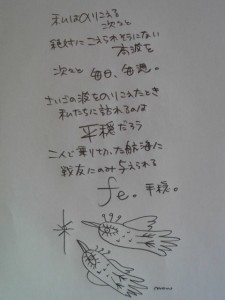 私はのりこえる
次々と
絶対にこえられそうにない
高波を
次々と 毎日、毎週。
さいごの波をのりこえたとき
私たちに訪れるのは
平穏だろう
二人で乗り切った航海に
戦友にのみ与えられる
fe。平穏。